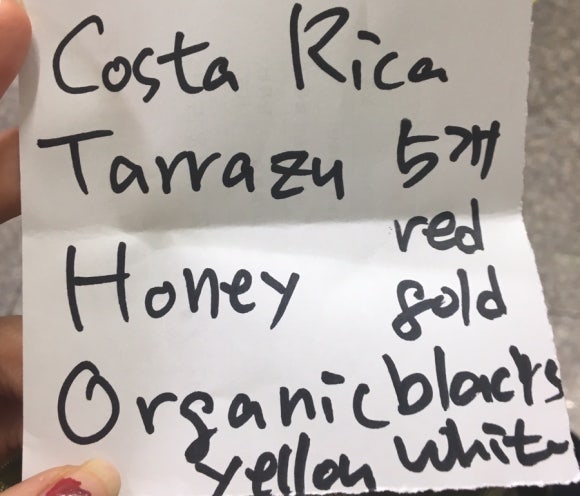 Costa Rica
Tarrazu 5개
red
Honey gold
Organic black
yellow white